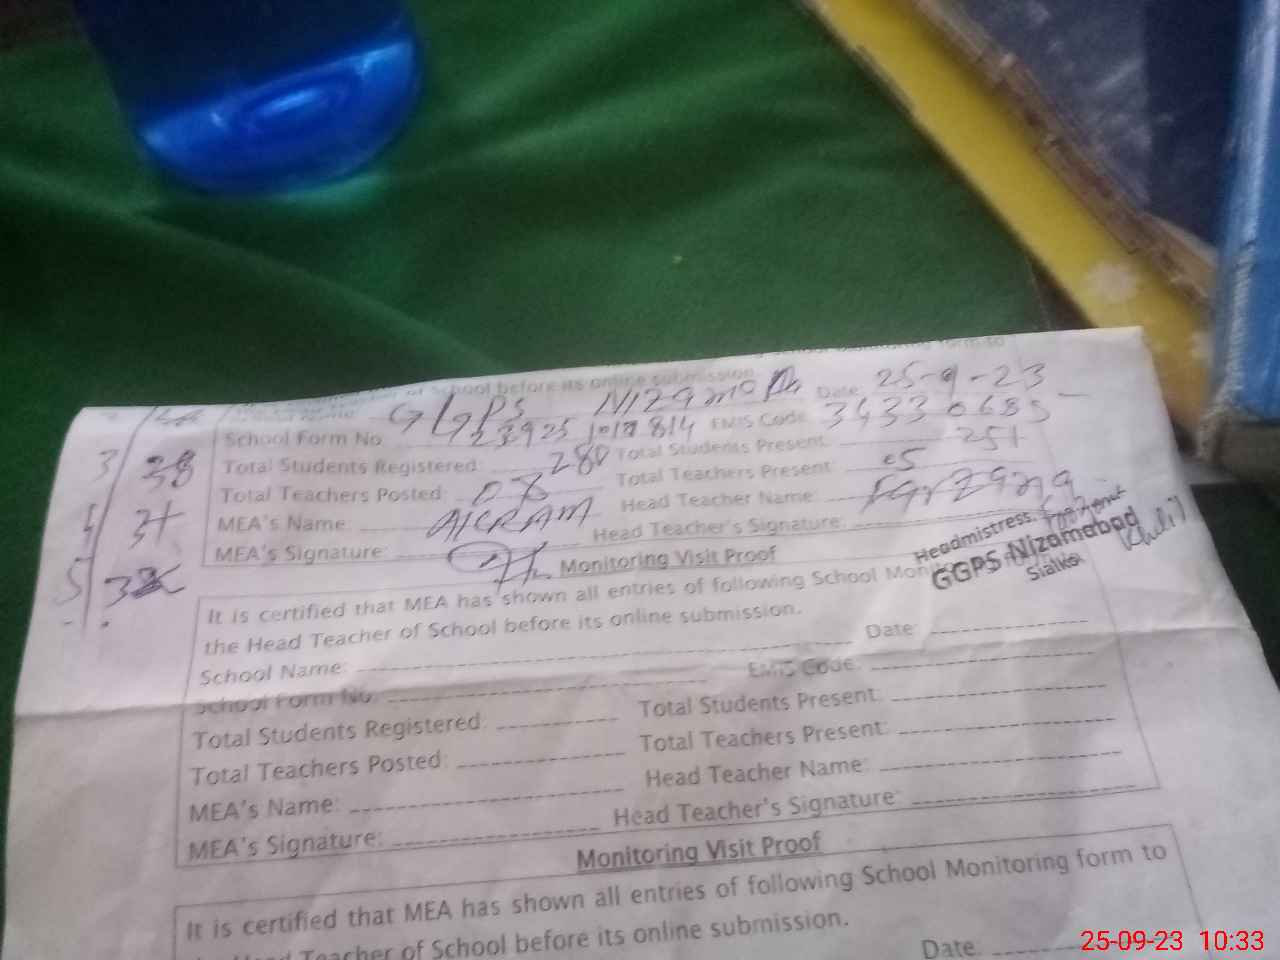 of School before its online submission.
GGPS Nizamabad Date 25-9-23
School Form No 23925 1017814 EMIS Code 34330685
3 38 Total Students Registered: 280 Total Students Present: 251
Total Teachers Posted: 08 Total Teachers Present: 05
4 MEA's Name: AKRAM Head Teacher Name: Farzana
MEA's Signature: Head Teacher's Signature:
5
Headmistress
GGPS Nizamabad
Sialkot
Monitoring Visit Proof
It is certified that MEA has shown all entries of following School
the Head Teacher of School before its online submission.
School Name: Date:
School Form No. EMIS Code:
Total Students Registered: Total Students Present:
Total Teachers Posted: Total Teachers Present:
MEA's Name: Head Teacher Name:
MEA's Signature: Head Teacher's Signature:
Monitoring Visit Proof
It is certified that MEA has shown all entries of following School Monitoring form to
Teacher of School before its online submission.
Date:
25-09-23 10:33